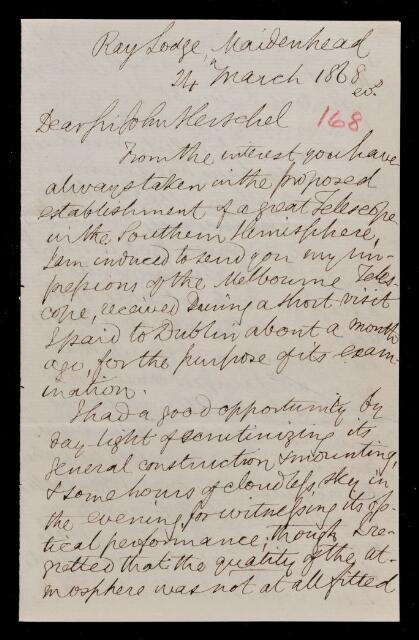 Ray Lodge, Maidenhead
24th March 1868
Dear Sir John Herschel
168
From the interest you have
always taken in the proposed
establishment of a great Telescope
in the Southern Hemisphere,
I am induced to send you my im-
pressions of the Melbourne Teles-
cope, received during a short visit
I paid to Dublin about a month
ago, for the purpose of its exam-
ination.
I had a good opportunity by
day-light of scrutinizing its
general construction & mounting,
& some hours of cloudless sky in
the evening for witnessing its op-
tical performance; though I re-
gretted that the quality of the at-
mosphere was not at all fitted